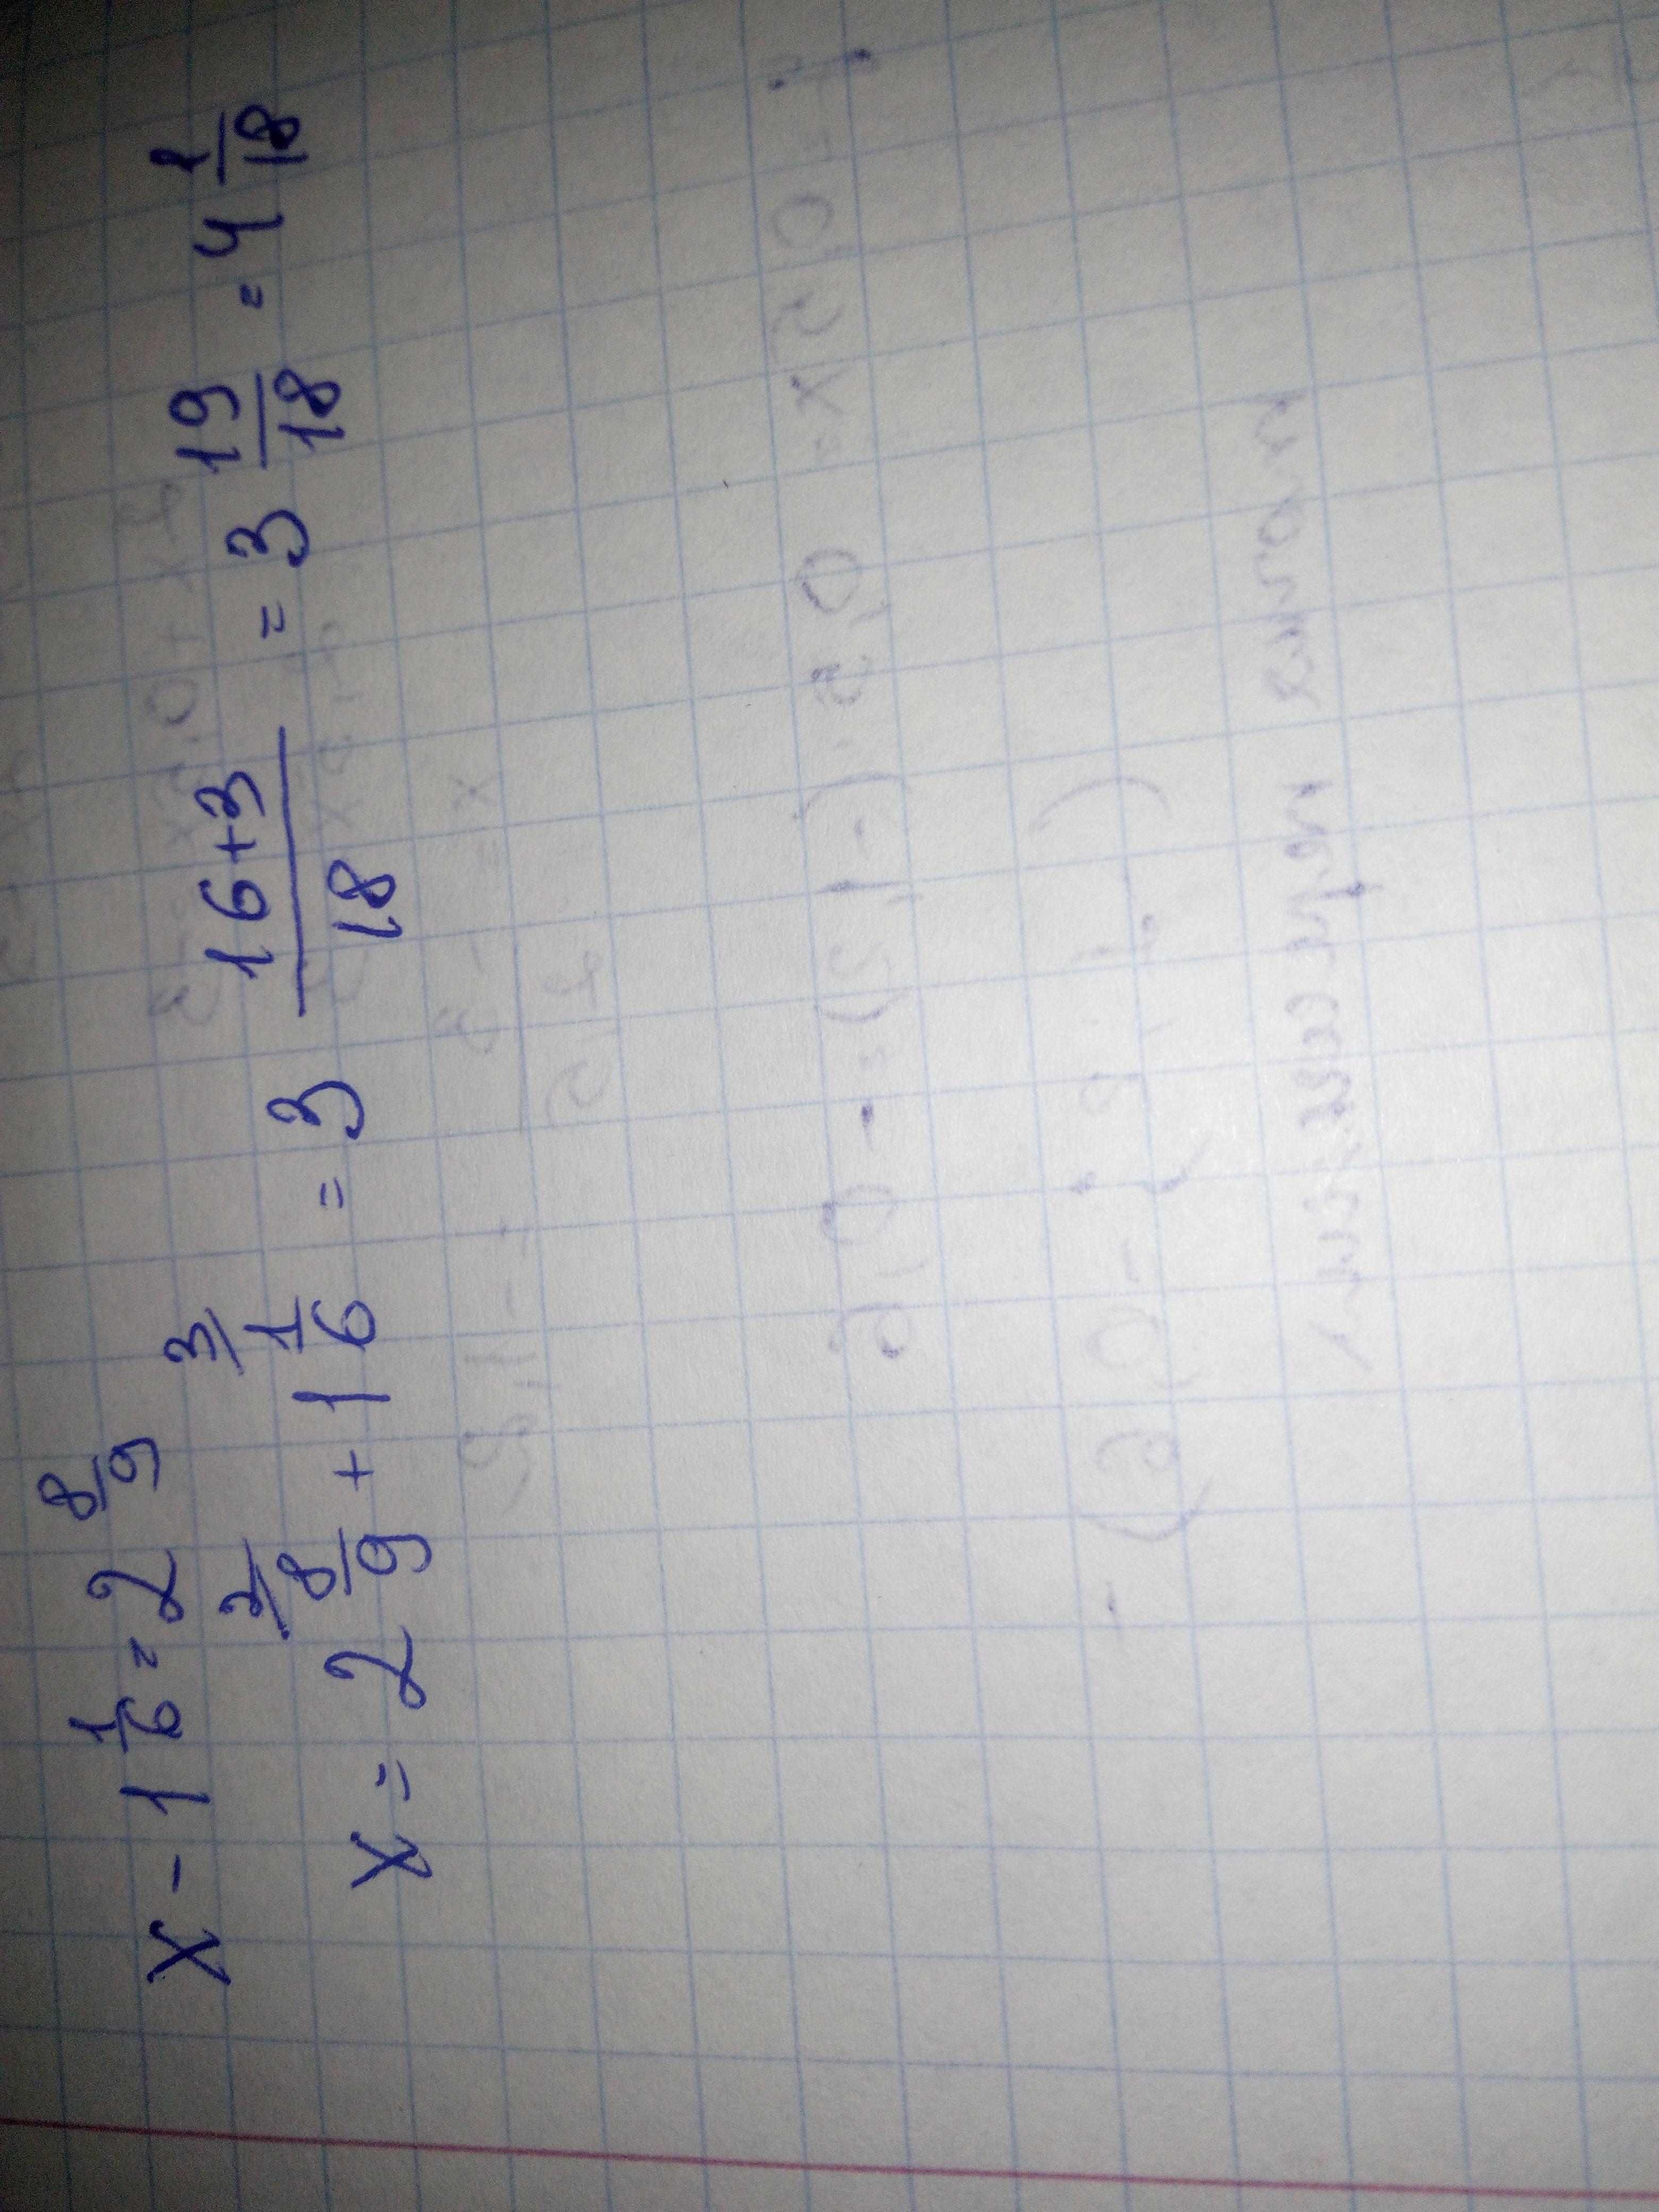 x - 1 1/6 = 2 8/9
x = 2 8/9 ²⁾ + 1 1/6 ³⁾ = 3 (16+3)/18 = 3 19/18 = 4 1/18